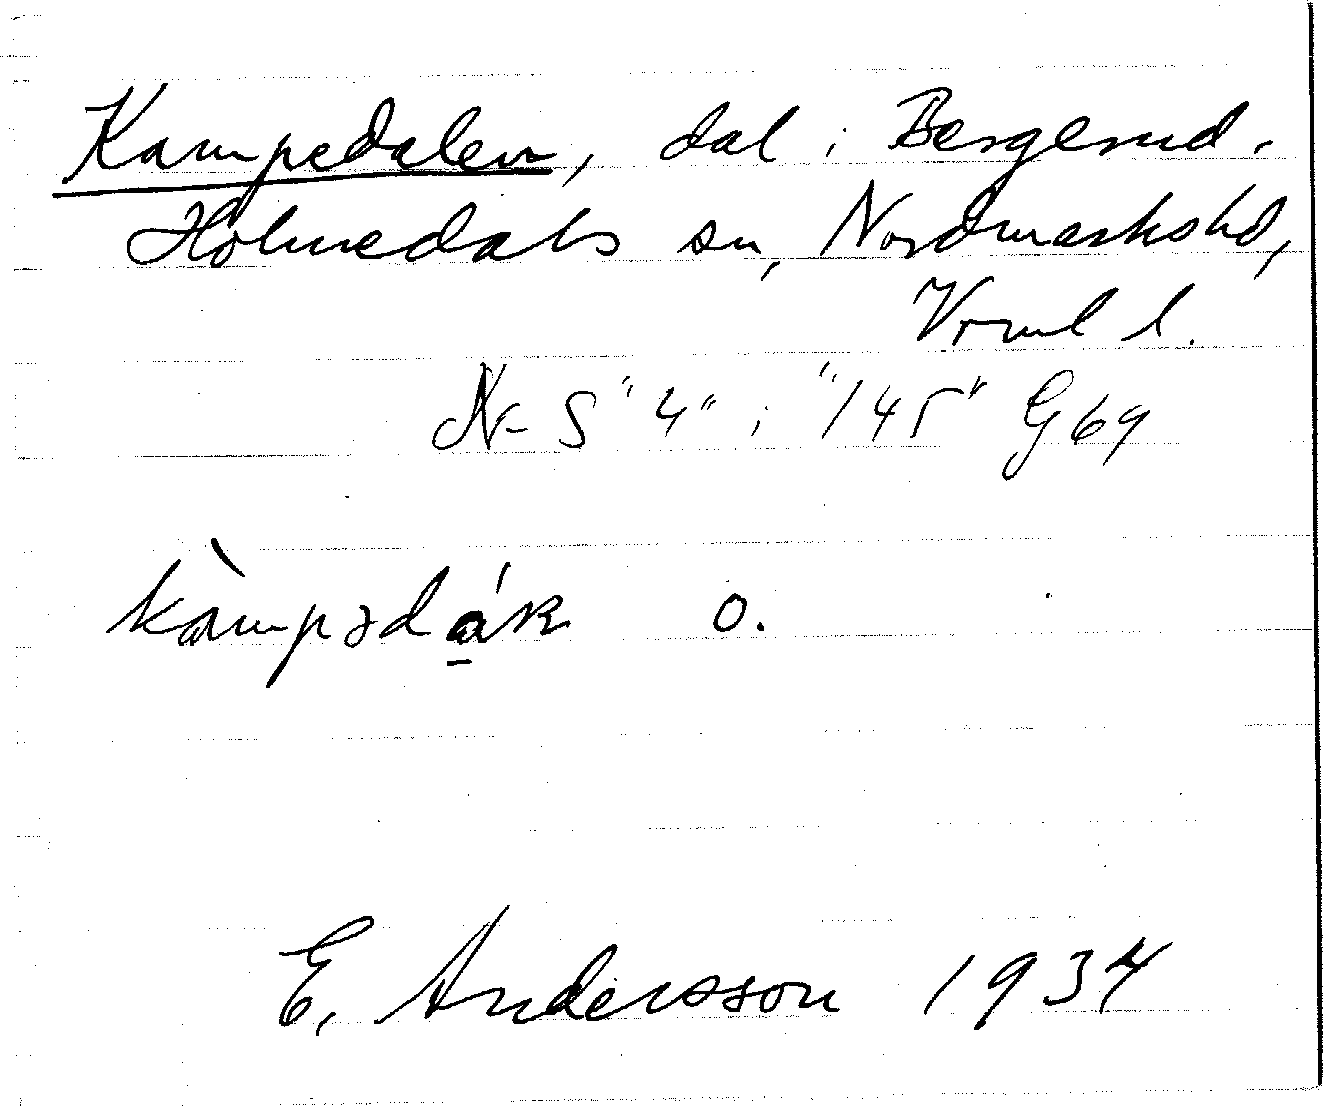 Kampedalen, dal i Bergerud.
Holmedals sn, Nordmarks hd,
Vrml l.
N-S "4" i "145" G69
kàmpədák o.
E. Andersson 1934